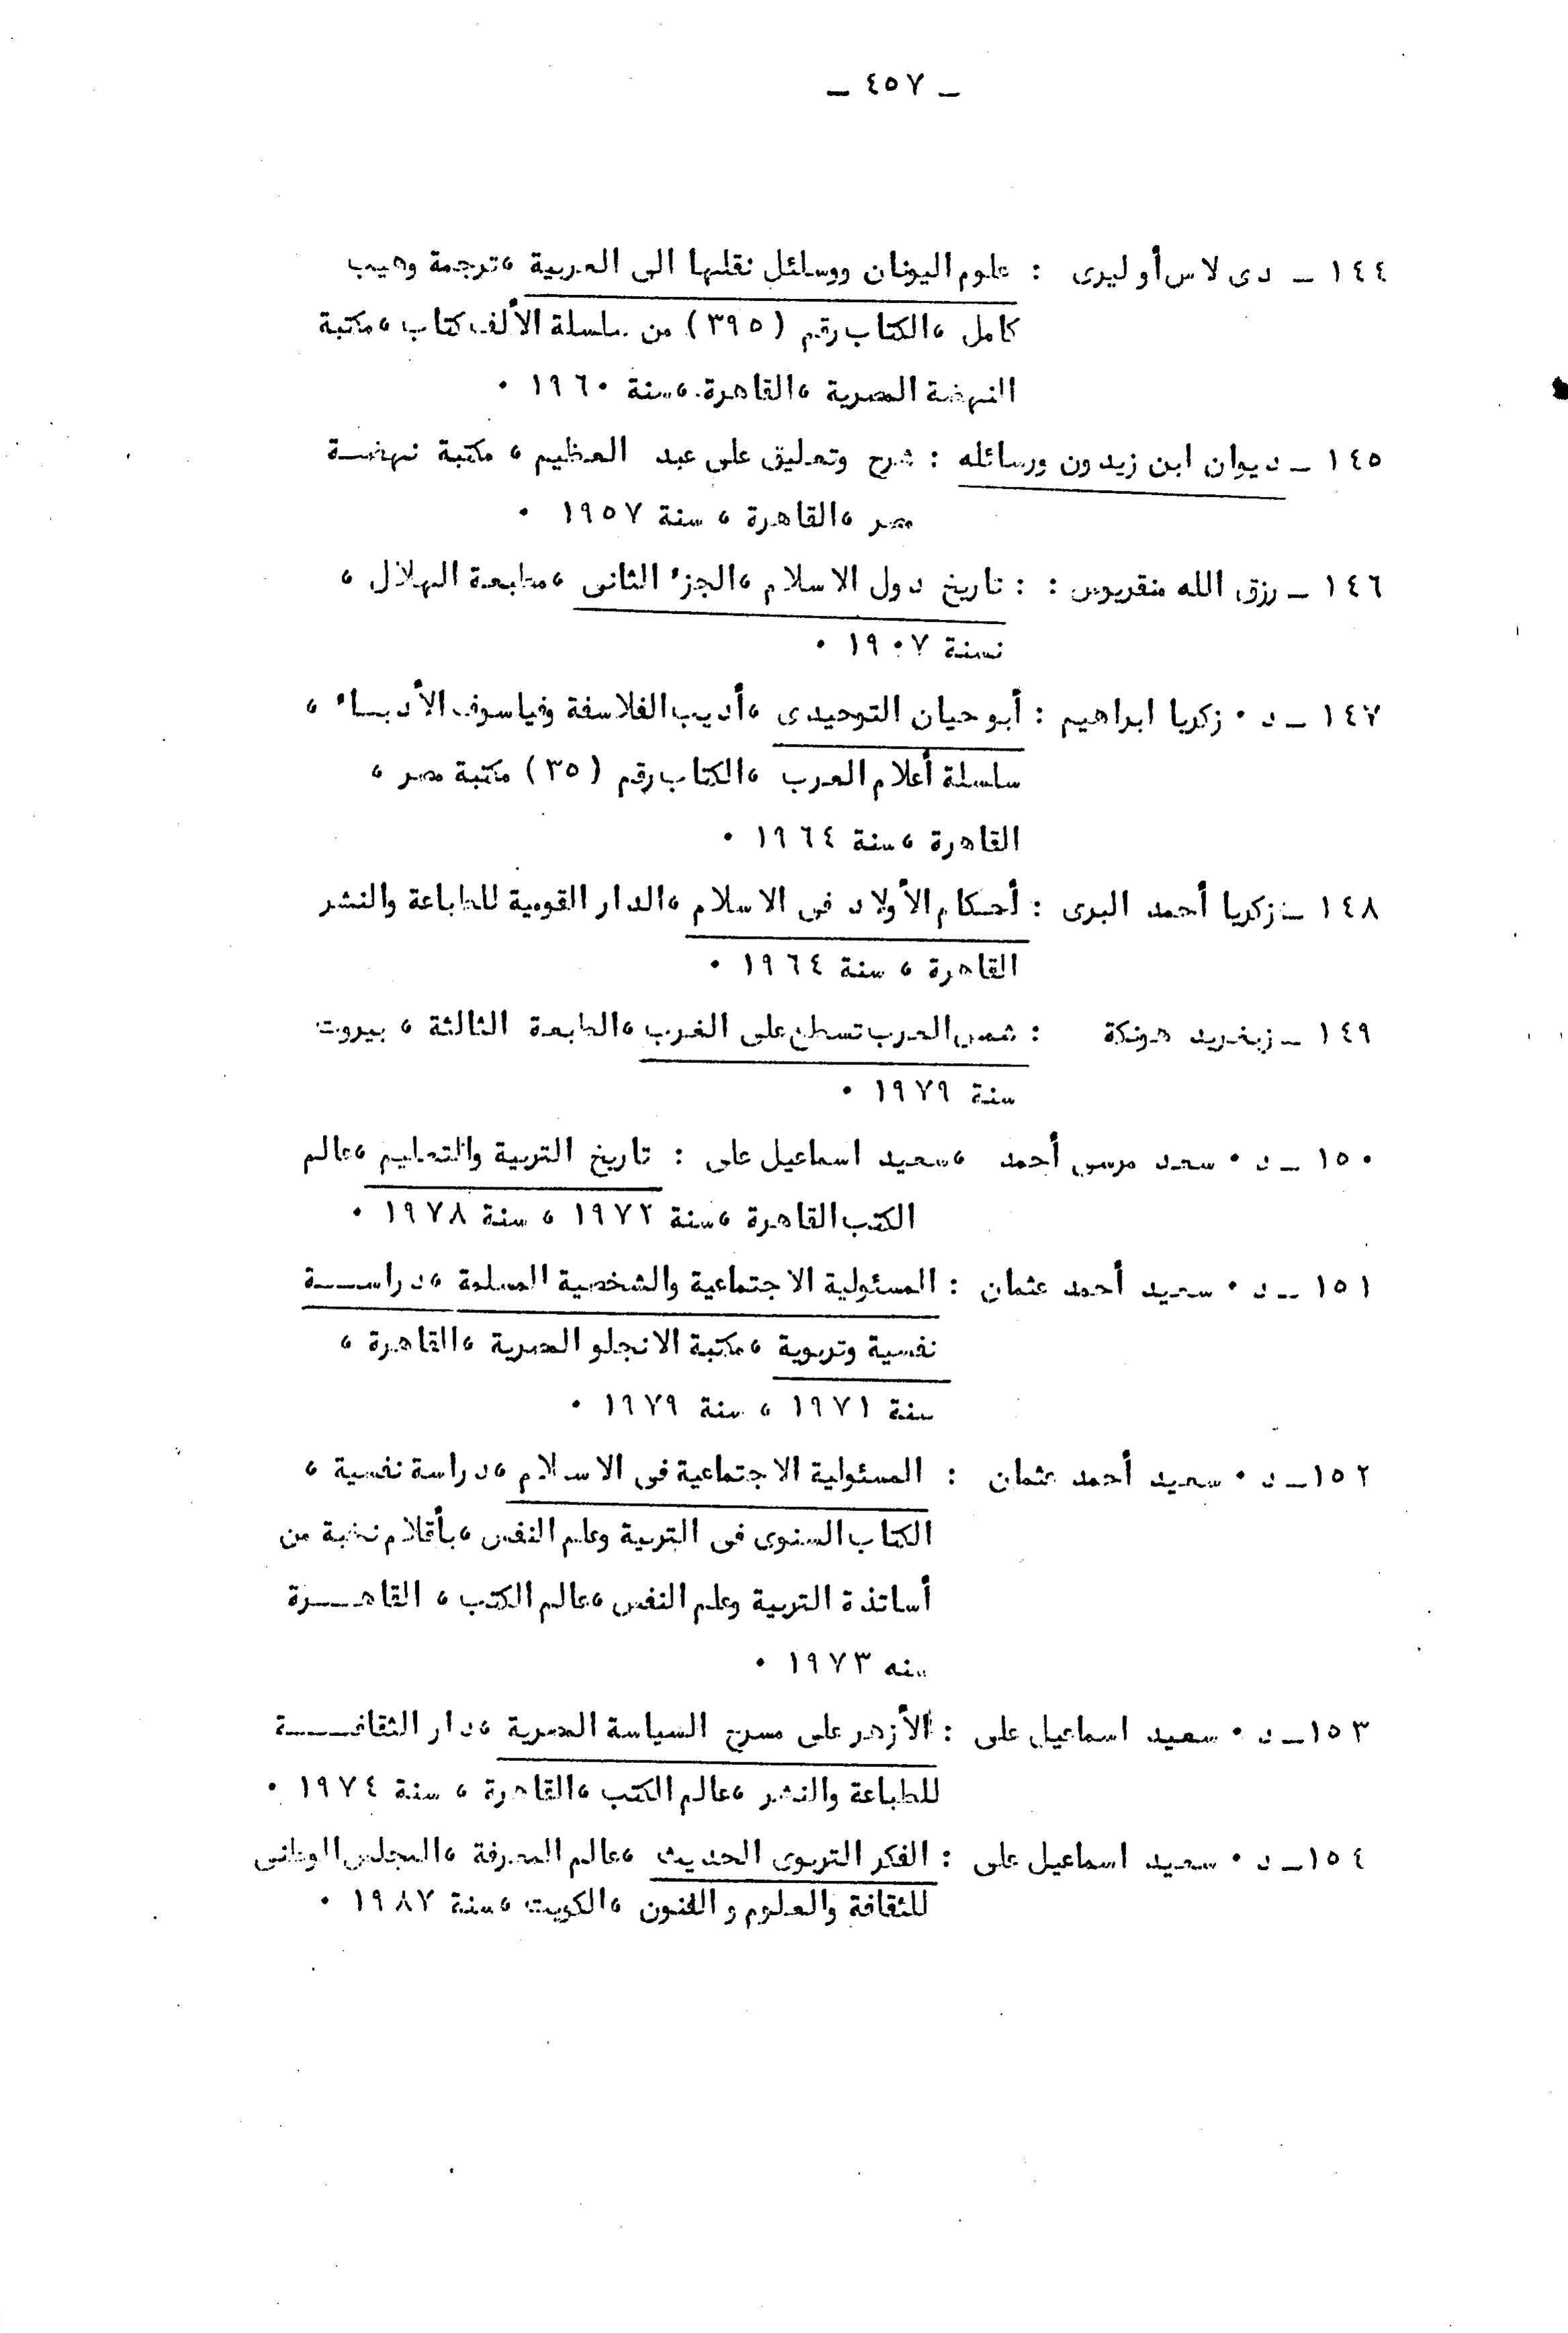 ـ ٤٥٧ ـ
١٤٤ ـ دى لاس أوليرى : علوم اليونان ووسائل نقلها الى العربية ، ترجمة وهيب
كامل ، الكتاب رقم (٣٩٥) من سلسلة الألف كتاب ، مكتبة
النهضة المصرية ، القاهرة ، سنة ١٩٦٠ ٠
١٤٥ ـ ديوان ابن زيدون ورسائله : شرح وتعليق على عبد العظيم ، مكتبة نهضـة
مصر ، القاهرة ، سنة ١٩٥٧ ٠
١٤٦ ـ رزق الله منقريوس : : تاريخ دول الاسلام ، الجزء الثانى ، مطبعة الهلال ،
نسنة ١٩٠٧ ٠
١٤٧ ـ د ٠ زكريا ابراهيم : أبو حيان التوحيدى ، أديب الفلاسفة وفياسوف الأدبـاء ،
سلسلة أعلام العرب ، الكتاب رقم (٣٥) مكتبة مصر ،
القاهرة ، سنة ١٩٦٤ ٠
١٤٨ ـ زكريا أحمد البرى : أحكام الأولاد فى الاسلام ، الدار القومية للطباعة والنشر
القاهرة ، سنة ١٩٦٤ ٠
١٤٩ ـ زيغريد هونكة : شمس العرب تسطع على الغرب ، الطبعة الثالثة ، بيروت
سنة ١٩٧٩ ٠
١٥٠ ـ د ٠ سعد مرسى أحمد ، سعيد اسماعيل على : تاريخ التربية والتعليم ، عالم
الكتب القاهرة ، سنة ١٩٧٢ ، سنة ١٩٧٨ ٠
١٥١ ـ د ٠ سعيد أحمد عثمان : المسئولية الاجتماعية والشخصية المسلمة ، دراســة
نفسية وتربوية ، مكتبة الانجلو المصرية ، القاهرة ،
سنة ١٩٧١ ، سنة ١٩٧٩ ٠
١٥٢ ـ د ٠ سعيد أحمد عثمان : المسئولية الاجتماعية فى الاسلام ، دراسة نفسية ،
الكتاب السنوى فى التربية وعلم النفس ، بأقلام نخبة من
أساتذة التربية وعلم النفس ، عالم الكتب ، القاهــرة
سنه ١٩٧٣ ٠
١٥٣ ـ د ٠ سعيد اسماعيل على : الأزهر على مسرح السياسة المصرية ، دار الثقافــة
للطباعة والنشر ، عالم الكتب ، القاهرة ، سنة ١٩٧٤ ٠
١٥٤ ـ د ٠ سعيد اسماعيل على : الفكر التربوى الحديث ، عالم المعرفة ، المجلس الوطنى
للثقافة والعلوم و الفنون ، الكويت ، سنة ١٩٨٧ ٠